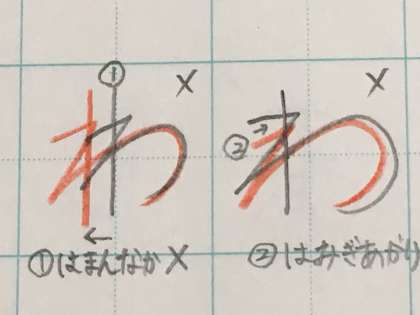 ① X
わ
①はまんなか X
② X
わ
②はみぎあがり